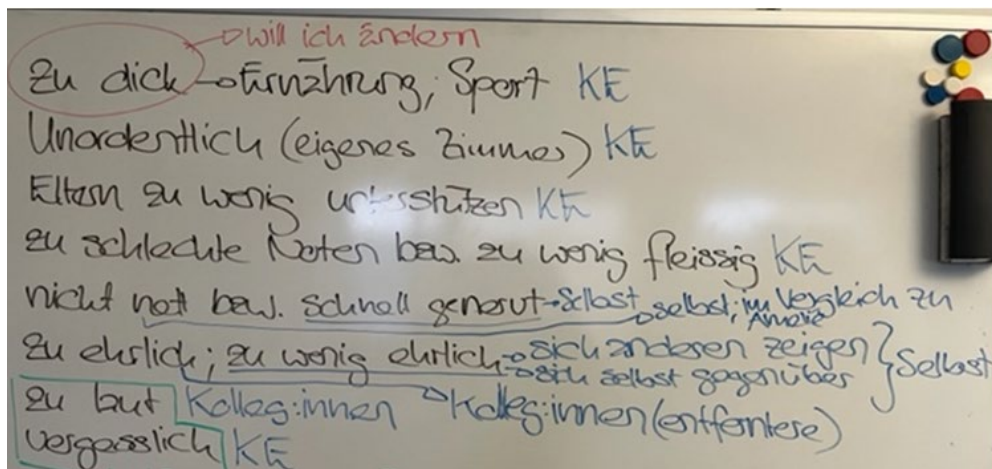 → will ich ändern
Zu dick → Ernährung; Sport KE
Unordentlich (eigenes Zimmer) KE
Eltern zu wenig unterstützen KE
zu schlechte Noten bzw. zu wenig fleissig KE
nicht nett bzw. schnell genervt → Selbst → selbst; im Vergleich zu
Amelie
zu ehrlich; zu wenig ehrlich → sich anderen zeigen } Selbst
→ sich selbst gegenüber
zu laut Kolleg:innen → Kolleg:innen (entferntere)
vergesslich KE